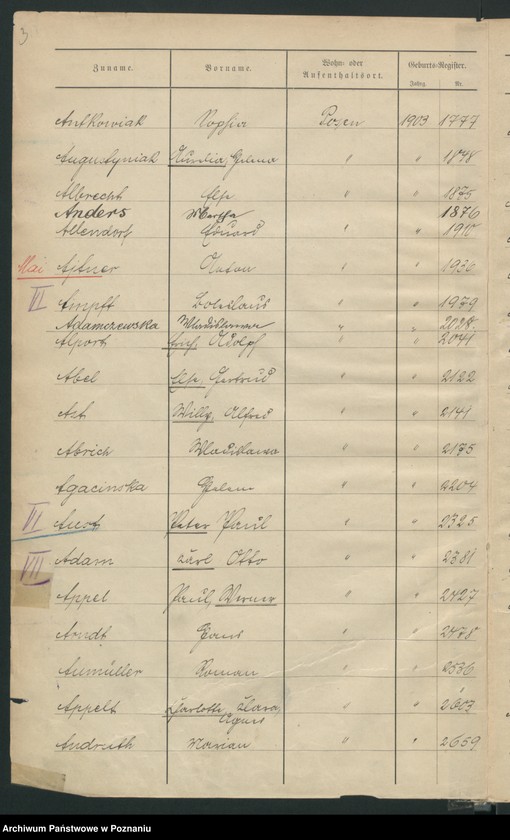 3
Zuname. Vorname. Wohn- oder Aufenthaltsort. Geburts-Register.
Jahrg. Nr.
Antkowiak Sophia Posen 1903 1777
Augustyniak Aurelia, Helena " " 1848
Albrecht Else " " 1875
Anders Martha 1876
Allendorf Eduard " " 1910
Mai Apfner Anton " " 1936
VI Ampft Boleslaus " " 1979
Adamczewska Wladislawa " " 2028.
Alport Erich, Adolph " " 2041
Abel Else, Gertrud " " 2122
Ast Willy, Alfred " " 2141
Abrich Wladislawa " " 2175
Agacinska Helene " " 2204
VI Aust Peter Paul " " 2325
VII Adam Karl Otto " " 2381
Appel Paul, Werner " " 2427
Arndt Hans " " 2478
Aumüller Roman " " 2536
Appelt Charlotte, Klara, Agnes " " 2603
Andruth Marian " " 2659
Archiwum Państwowe w Poznaniu